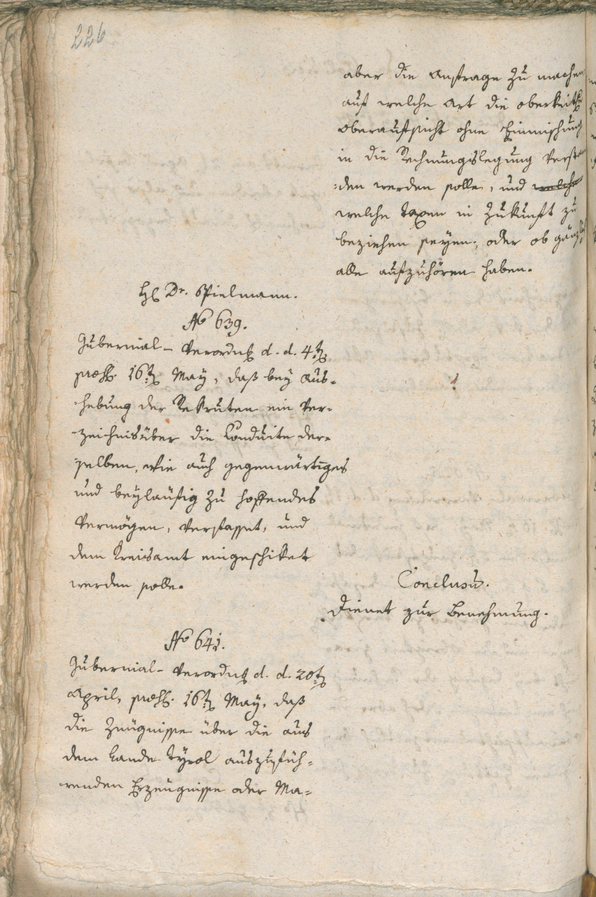 226
aber die Anfrage zu machen
auf welche Art die oberkeitl
oberaufsicht ohne Einmischung
in die Rechnungslegung verstan
:den werden solle, und welche
welche taxen in Zukunft zu
beziehen seyen, oder ob gänzl
alle aufzuhören haben.
H Dr. Spielmann.
No 639.
Gubernial-Verordng d. d. 4t
praes. 16t May, daß bey Aus-
hebung der Rekruten ein Ver-
zeichniß über die Conduite der-
selben, wie auch gegenwärtiges
und beyläufig zu hoffendes
Vermögen, verfasset, und
dem Kreisamt eingeschiket
werden solle.
Conclusū.
Dienet zur Benehmung.
No 641.
Gubernial-Verordng d. d. 20t
April, praes. 16t May, daß
die Zeügnisse über die aus
dem Lande Tyrol auszufüh-
renden Erzeügnisse oder Ma-